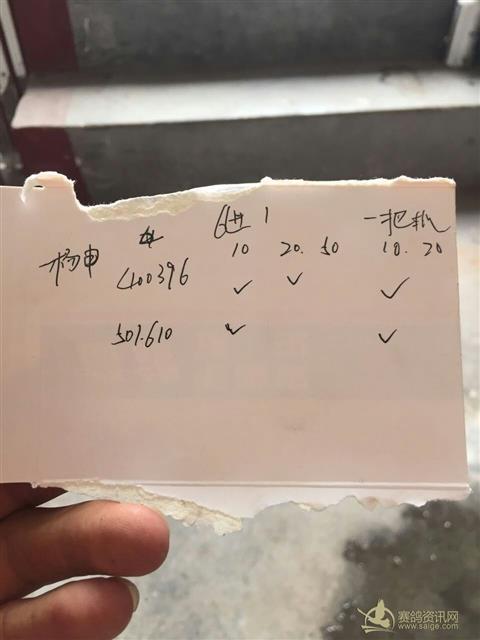 6进1 一把抓
10 20. 50 10. 20
杨申
400396 ✓ ✓ ✓
501.610 ✓ ✓
赛鸽资讯网
www.saige.com